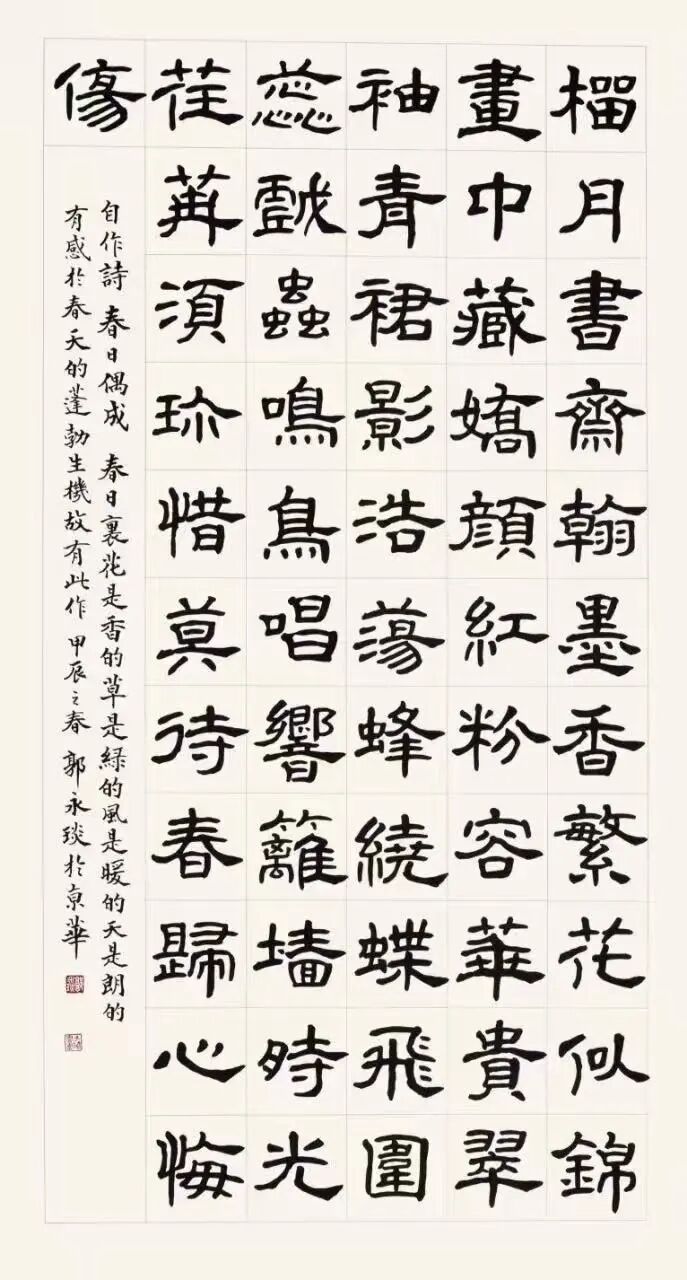 榴月書齋翰墨香繁花似錦
畫中藏嬌顏紅粉容華貴翠
袖青裙影浩蕩蜂繞蝶飛圍
蕊戲蟲鳴鳥唱響籬墻時光
荏苒須珎惜莫待春歸心悔
傷
自作詩 春日偶成 春日裏花是香的草是綠的風是暖的天是朗的
有感於春天的蓬勃生機故有此作 甲辰之春 郭永琰於京華